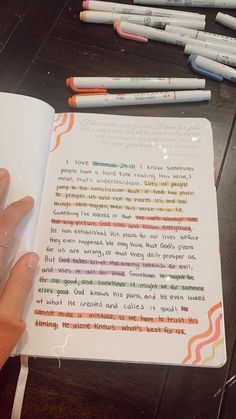 I love Jeremiah 29:11! I know sometimes
people have a hard time reading this verse, I
mean, that's understandable. Lots of people
jump to the conclusion that if God has plans
to prosper us and not to harm us, and bad
things still happen, then this verse is a lie.
Something I've learned is that we can't always see
the big picture. God sees and knows everything.
He has established His plans for our lives before
they even happened. We may think that God's plans
for us are wrong, or that they didn't prosper us.
But God takes what the enemy intends for evil,
and uses it all for good. Sometimes it might be
for our good, and sometimes it might be for someone
elses good. God knows his plans, and He even looked
at what He created and called it good! He
cannot make a mistake, so we have to trust His
timing. He alone knows what's best for us.